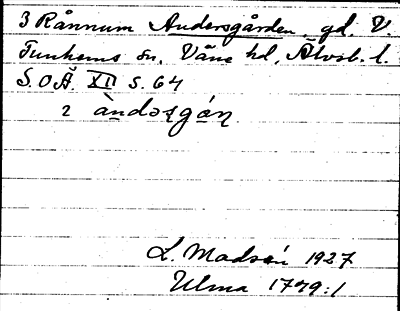 3 Rånnum Andersgården, gd. V.
Tunhems sn, Väne hd, Älvsb. l.
S.O.Ä. XII s. 64
2 àndəʂgán
L. Madsén 1927
Ulma 1779:1